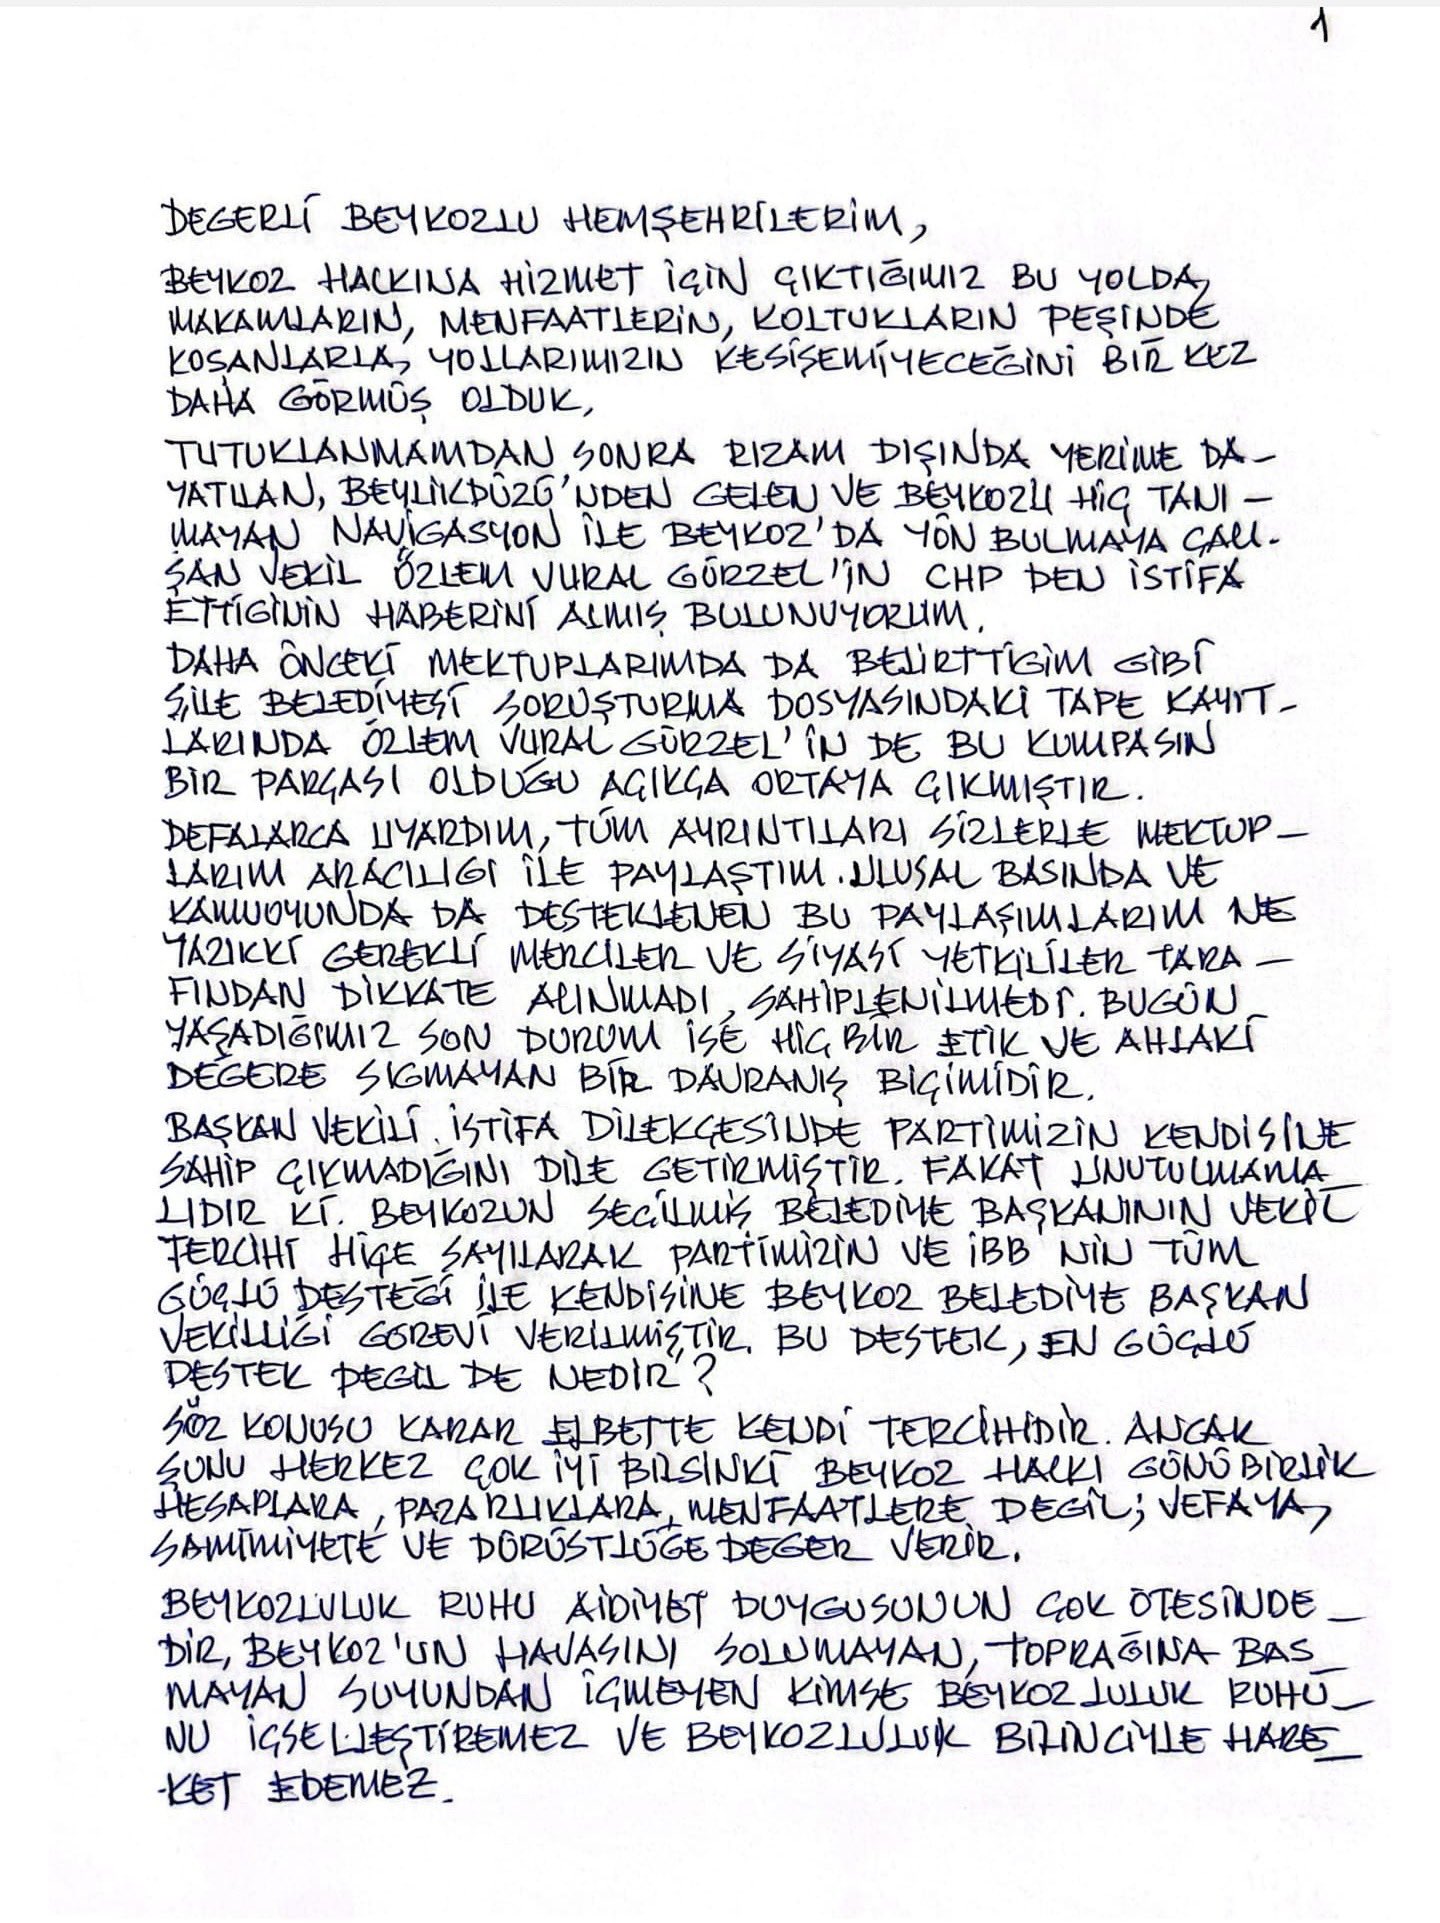 1
DEGERLİ BEYKOZLU HEMŞEHRİLERİM,
BEYKOZ HALKINA HİZMET İÇİN ÇIKTIĞIMIZ BU YOLDA,
MAKAMLARIN, MENFAATLERİN, KOLTUKLARIN PEŞİNDE
KOŞANLARLA, YOLLARIMIZIN KESİŞEMİYECEĞİNİ BİR KEZ
DAHA GÖRMÜŞ OLDUK,
TUTUKLANMAMDAN SONRA RIZAM DIŞINDA YERİME DA-
YATILAN, BEYLİKDÜZÜ'NDEN GELEN VE BEYKOZU HİÇ TANI-
MAYAN NAVİGASYON İLE BEYKOZ'DA YÖN BULMAYA ÇALI-
ŞAN VEKİL ÖZLEM VURAL GÜRZEL'İN CHP DEN İSTİFA
ETTİGİNİN HABERİNİ ALMIŞ BULUNUYORUM.
DAHA ÖNCEKİ MEKTUPLARIMDA DA BELİRTTİGİM GİBİ
ŞİLE BELEDİYESİ SORUŞTURMA DOSYASINDAKİ TAPE KAYIT-
LARINDA ÖZLEM VURAL GÜRZEL'İN DE BU KUMPASIN
BİR PARÇASI OLDUĞU AÇIKÇA ORTAYA ÇIKMIŞTIR.
DEFALARCA UYARDIM, TÜM AYRINTILARI SİZLERLE MEKTUP-
LARIM ARACILIGI İLE PAYLAŞTIM. ULUSAL BASINDA VE
KAMUOYUNDA DA DESTEKLENEN BU PAYLAŞIMLARIM NE
YAZIKKİ GEREKLİ MERCİLER VE SİYASİ YETKİLİLER TARA-
FINDAN DİKKATE ALINMADI, SAHİPLENİLMEDİ. BUGÜN
YAŞADIĞIMIZ SON DURUM İSE HİÇ BİR ETİK VE AHLAKİ
DEĞERE SIGMAYAN BİR DAVRANIŞ BİÇİMİDİR.
BAŞKAN VEKİLİ. İSTİFA DİLEKÇESİNDE PARTİMİZİN KENDİSİNE
SAHİP ÇIKMADIĞINI DİLE GETİRMİŞTİR. FAKAT UNUTULMAMA_
LIDIR Kİ. BEYKOZUN SEÇİLMİŞ BELEDİYE BAŞKANININ VEKİL
TERCİHİ HİÇE SAYILARAK PARTİMİZİN VE İBB'NİN TÜM
GÜÇLÜ DESTEĞİ İLE KENDİSİNE BEYKOZ BELEDİYE BAŞKAN
VEKİLLİĞİ GÖREVİ VERİLMİŞTİR. BU DESTEK, EN GÜÇLÜ
DESTEK DEGİL DE NEDİR?
SÖZ KONUSU KARAR ELBETTE KENDİ TERCİHİDİR. ANCAK
ŞUNU HERKEZ ÇOK İYİ BİLSİNKİ BEYKOZ HALKI GÜNÜBİRLİK
HESAPLARA, PAZARLIKLARA, MENFAATLERE DEGİL; VEFAYA,
SAMİMİYETE VE DÜRÜSTLÜĞE DEGER VERİR.
BEYKOZLULUK RUHU AİDİYET DUYGUSUNUN ÇOK ÖTESİNDE_
DİR, BEYKOZ'UN HAVASINI SOLUMAYAN, TOPRAĞINA BAS_
MAYAN SUYUNDAN İÇMEYEN KİMSE BEYKOZLULUK RUHU_
NU İÇSELLEŞTİREMEZ VE BEYKOZLULUK BİLİNCİYLE HARE_
KET EDEMEZ.